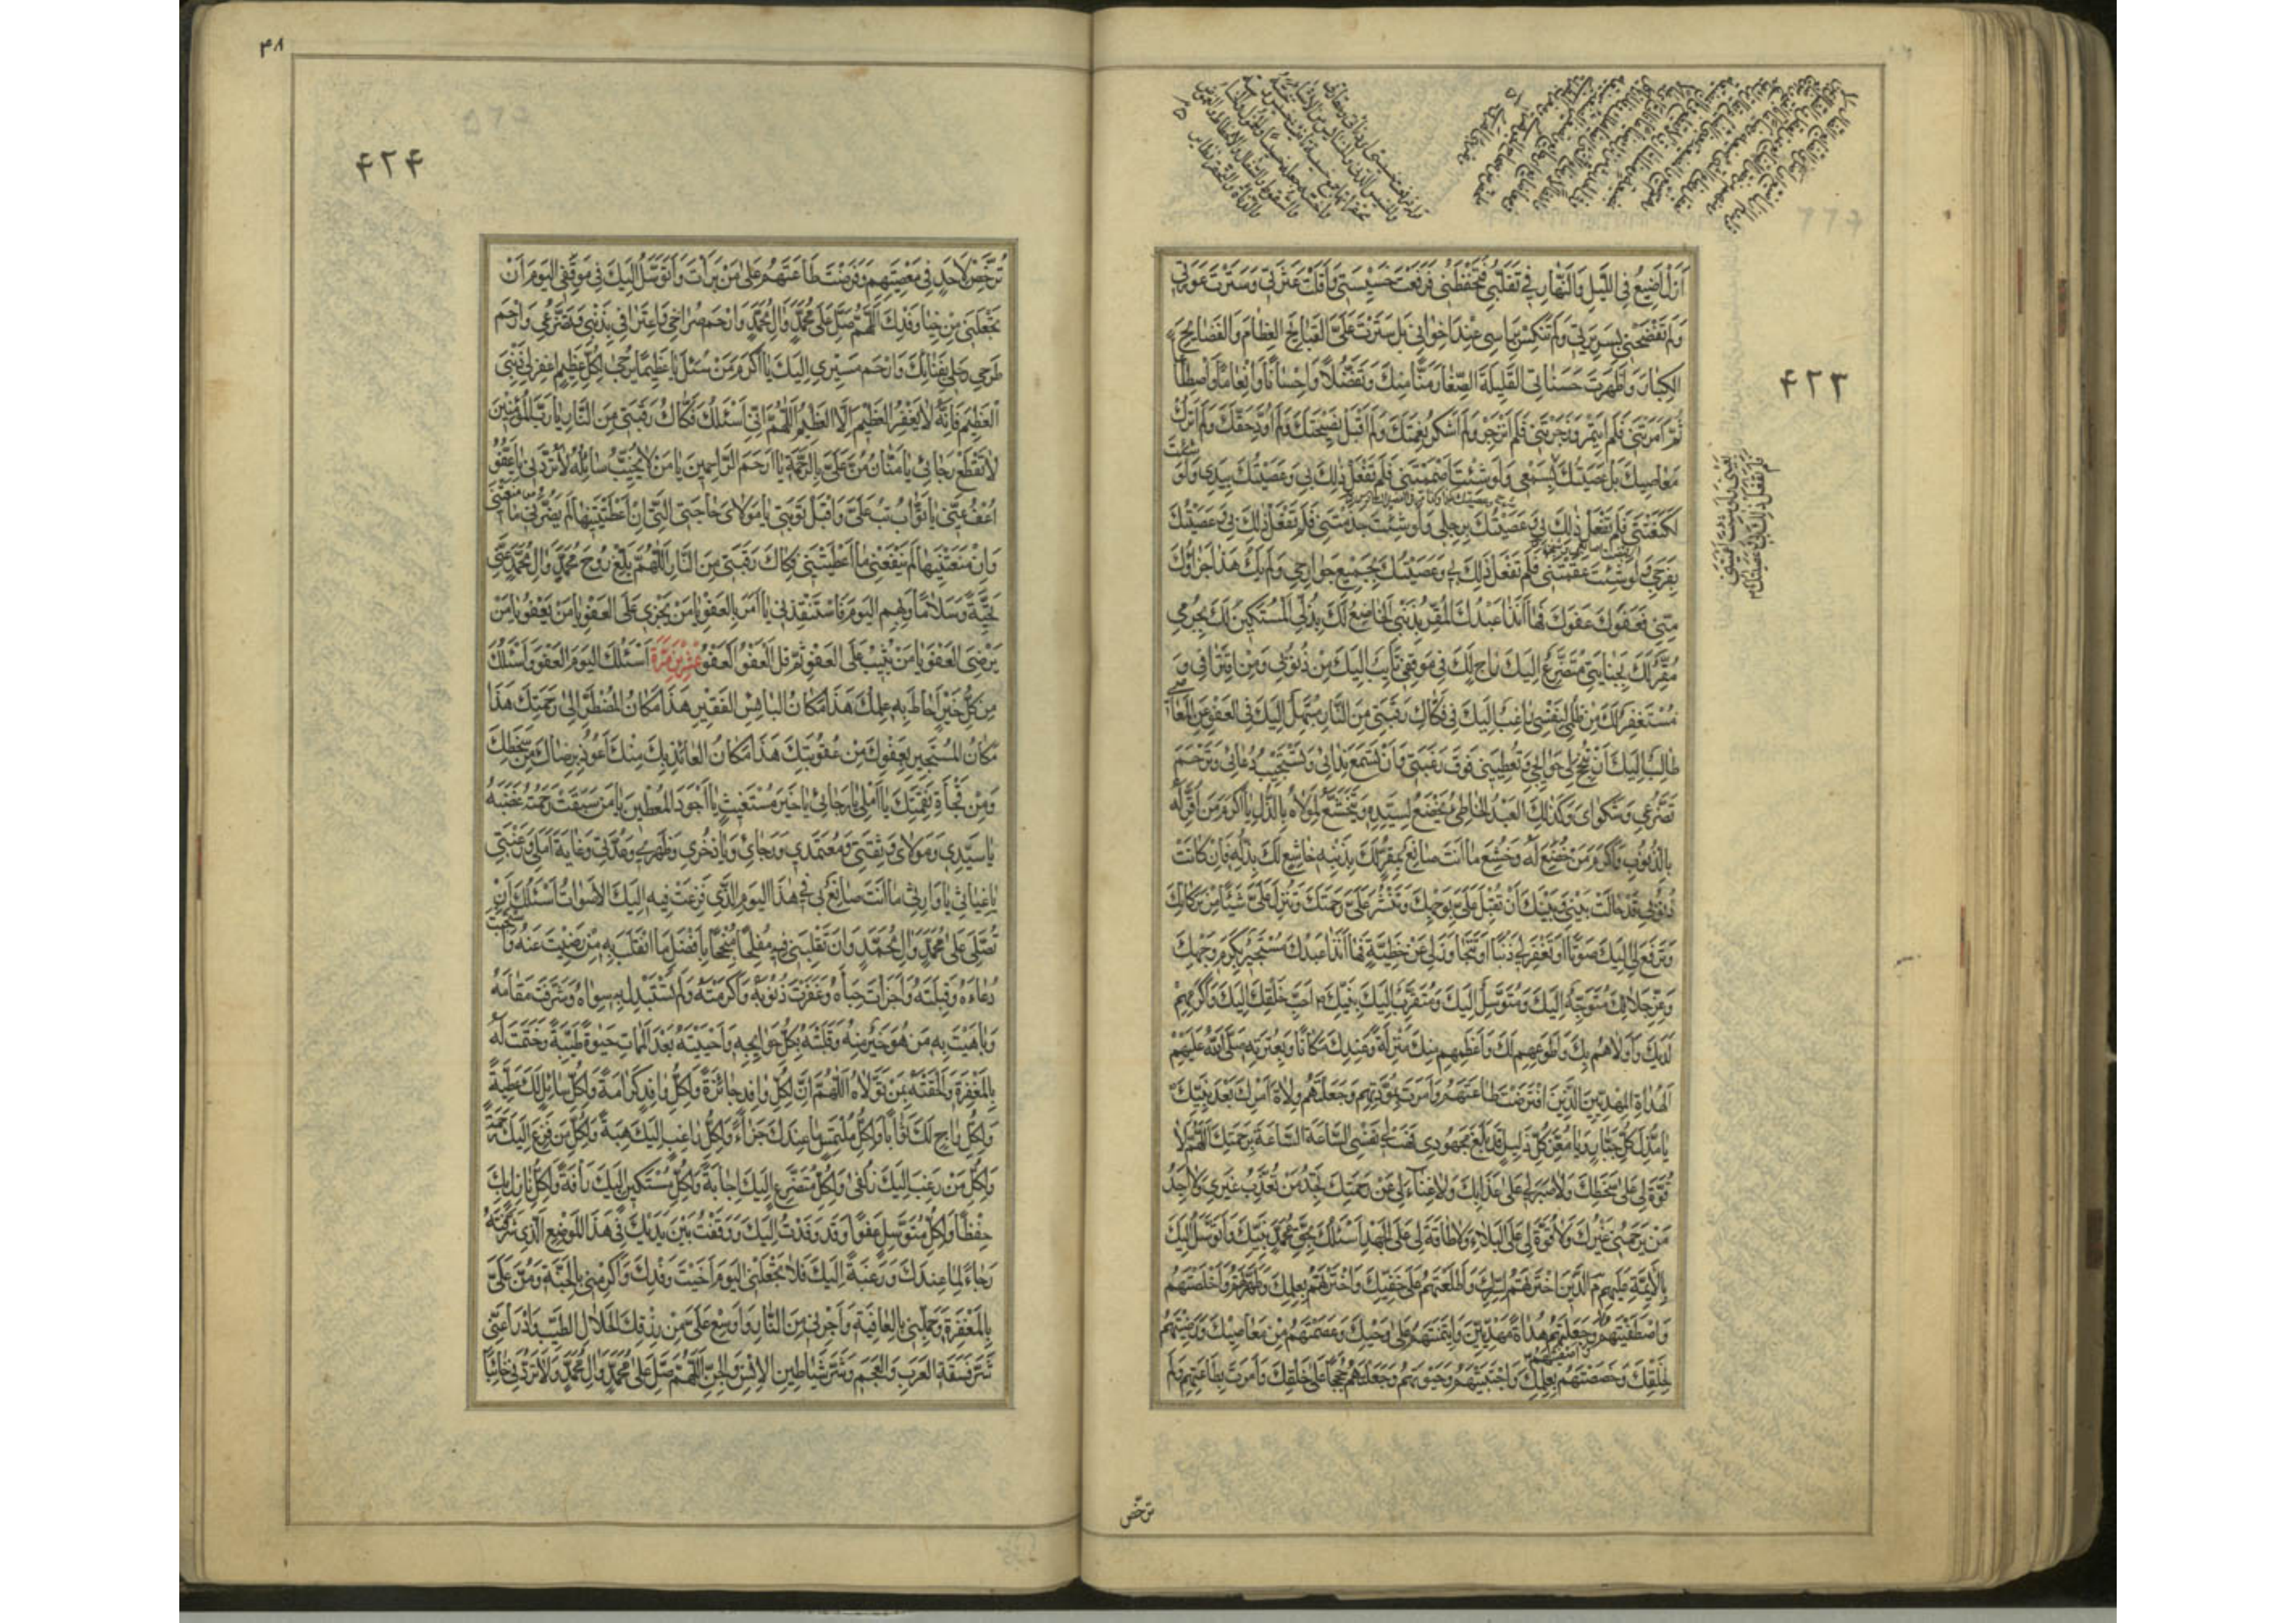 ۴۲۳
أزل أضيع في الليل والنهار في تقلبي فتحفظني فرفعت خسيستي وأقلت عثرتي وسترت عورتي
ولم تفضحني بسريرتي ولم تنكس برأسي عند إخواني بل سترت علي القبايح العظام والفضايح
الكبار وأظهرت حسناتي القليلة الصغار منا منك وتفضلا وإحسانا وإنعاما واصطناعا
ثم أمرتني فلم أيتمر وزجرتني فلم أنزجر ولم أشكر نعمتك ولم أقبل نصيحتك ولم أؤد حقك ولم أترك
معاصيك بل عصيتك بسمعي ولو شئت أصممتني فلم تفعل ذلك بي وعصيتك بيدي ولو شئت
لكنعتني فلم تفعل ذلك بي وعصيتك برجلي ولو شئت جذمتني فلم تفعل ذلك بي وعصيتك
بفرجي ولو شئت عقمتني فلم تفعل ذلك بي وعصيتك بجميع جوارحي ولم يك هذا جزاؤك
مني فعفوك عفوك فها أنا ذا عبدك المقر بذنبي الخاضع لك بذلي المستكين لك بجرمي
مقر لك بجنايتي متضرع إليك راج لك في موقفي تايب إليك من ذنوبي ومن اقترافي و
مستغفر لك من ظلمي لنفسي راغب إليك في فكاك رقبتي من النار مبتهل إليك في العفو عن المعاصي
طالب إليك أن تنجح لي حوايجي وتعطيني فوق رغبتي وأن تسمع ندائي وتستجيب دعائي وترحم
تضرعي وشكواي وكذلك العبد الخاطئ يخضع لسيده ويتخشع لمولاه بالذل يا أكرم من أقر له
بالذنوب وأكرم من خضع له وخشع ما أنت صانع بمقر لك بذنبه خاشع لك بذله فإن كانت
ذنوبي قد حالت بيني وبينك أن تقبل علي بوجهك وتنشر علي رحمتك وتنزل علي شيئا من بركاتك
وترفع لي إليك صوتا أو تغفر لي ذنبا أو تتجاوز لي عن خطيئة فها أنا ذا عبدك مستجير بكرم وجهك
وعز جلالك متوجه إليك ومتوسل إليك ومتقرب إليك بنبيك أحب خلقك إليك وأكرمهم
لديك وأولاهم بك وأطوعهم لك وأعظمهم منك منزلة وعندك مكانا وبعترته صلى الله عليهم
الهداة المهديين الذين افترضت طاعتهم وأمرت بمودتهم وجعلتهم ولاة أمرك بعد نبيك
يا مذل كل جبار ويا معز كل ذليل قد بلغ مجهودي فهب لي نفسي الساعة الساعة برحمتك اللهم لا
قوة لي على سخطك ولا صبر لي على عذابك ولا غناء لي عن رحمتك تجد من تعذب غيري ولا أجد
من يرحمني غيرك ولا قوة لي على البلاء ولا طاقة لي على الجهد أسئلك بحق محمد نبيك وأتوسل إليك
بالأئمة عليهم السلام الذين اخترتهم لسرك وأطلعتهم على خفيك واخترتهم بعلمك وطهرتهم وأخلصتهم
واصطفيتهم وأصفيتهم وجعلتهم هداة مهديين وايتمنتهم على وحيك وعصمتهم من معاصيك ورضيتهم
لخلقك وخصصتهم بعلمك واجتبيتهم وحبوتهم وجعلتهم حججا على خلقك وأمرت بطاعتهم ولم
ترخص
۴۸
۴۲۴
ترخص لأحد في معصيتهم وفرضت طاعتهم على من برأت وأتوسل إليك في موقفي اليوم أن
تجعلني من خيار وفدك اللهم صل على محمد وآل محمد وارحم صراخي واعترافي بذنبي وتضرعي وارحم
طرحي رحلي بفنائك وارحم مسيري إليك يا أكرم من سئل يا عظيما يرجى لكل عظيم اغفر لي ذنبي
العظيم فإنه لا يغفر العظيم إلا العظيم اللهم إني أسئلك فكاك رقبتي من النار يا رب المؤمنين
لا تقطع رجائي يا منان من علي بالرحمة يا أرحم الراحمين يا من لا يخيب سائله لا تردني يا عفو
اعف عني يا تواب تب علي واقبل توبتي يا مولاي حاجتي التي إن أعطيتنيها لم يضرني ما منعتني
وإن منعتنيها لم ينفعني ما أعطيتني فكاك رقبتي من النار اللهم بلغ روح محمد وآل محمد عني
تحية وسلاما وبهم اليوم فاستنقذني يا من أمر بالعفو يا من يجزي على العفو يا من يعفو يا من
يرضى العفو يا من يثيب على العفو ثم قل العفو العفو عشرين مرة أسئلك اليوم العفو وأسئلك
من كل خير أحاط به علمك هذا مكان البائس الفقير هذا مكان المضطر إلى رحمتك هذا
مكان المستجير بعفوك من عقوبتك هذا مكان العائذ بك منك أعوذ برضاك من سخطك
ومن فجأة نقمتك يا أملي يا رجائي يا خير مستغيث يا أجود المعطين يا من سبقت رحمته غضبه
يا سيدي ومولاي وثقتي ومعتمدي ورجائي ويا ذخري وظهري وعدتي وغاية أملي ورغبتي
يا غياثي يا وارثي ما أنت صانع بي في هذا اليوم الذي فزعت فيه إليك الأصوات أسئلك أن
تصلي على محمد وآل محمد وأن تقلبني فيه مفلحا منجحا بأفضل ما انقلب به من رضيت عنه واستجبت
دعاءه وقبلته وأجزلت حباه وغفرت ذنوبه وأكرمته ولم تستبدل به سواه وشرفت مقامه
وباهيت به من هو خير منه وقلبته بكل حوايجه وأحييته بعد الممات حيوة طيبة وختمت له
بالمغفرة وألحقته بمن تولاه اللهم إن لكل وافد جائزة ولكل وافد كرامة ولكل سائل لك عطية
ولكل راج لك ثوابا ولكل ملتمس ما عندك جزاء ولكل راغب إليك هبة ولكل من فزع إليك رحمة
ولكل من رغب إليك زلفى ولكل متضرع إليك إجابة ولكل مستكين إليك رأفة ولكل نازل بك
حفظا ولكل متوسل عفوا وقد وفدت إليك ووقفت بين يديك في هذا الموضع الذي شرفته
رجاء لما عندك ورغبة إليك فلا تجعلني اليوم أخيب وفدك وأكرمني بالجنة ومن علي
بالمغفرة وجملني بالعافية وأجرني من النار وأوسع علي من رزقك الحلال الطيب وادرأ عني
شر فسقة العرب والعجم وشر شياطين الإنس والجن اللهم صل على محمد وآل محمد ولا تردني خائبا